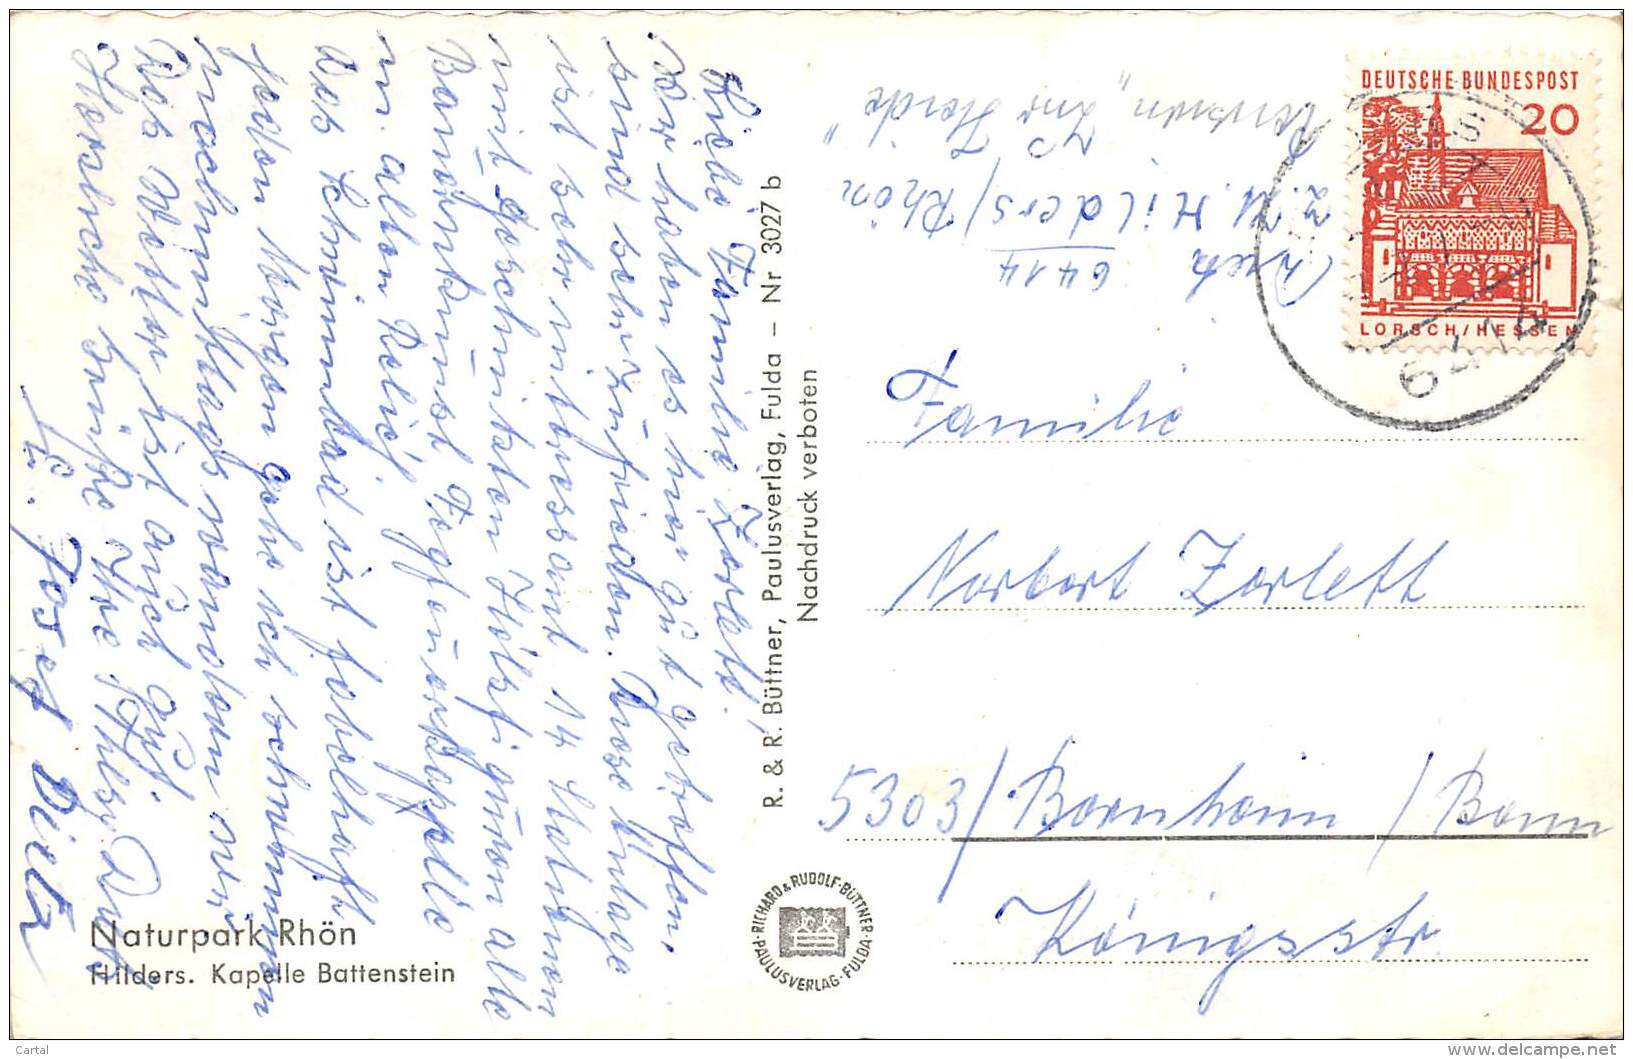 Liebe Familie Zorlett!
Wir haben es hier gut getroffen,
sind sehr zufrieden. Diese Anlage
ist sehr intressant 14 Stationen
mit geschnitzten Holzfiguren alle
Baüernkunst Fegfeuerkapelle
m. alten Relief.
Das Schwimmbad ist fabelhaft
jeden Morgen gehe ich schwimmen
nachmittags wandern wir
Das Wetter ist auch gut.
Herzliche Grüße Ihre
u. Josef Dietz
Naturpark Rhön
Hilders. Kapelle Battenstein
R. & R. Büttner, Paulusverlag, Fulda – Nr 3027 b
Nachdruck verboten
RICHARD & RUDOLF BÜTTNER
PAULUSVERLAG · FULDA
DEUTSCHE BUNDESPOST
20
LORSCH/HESSEN
6414
6414
z. Zt. Hilders/Rhön
Pension „Zur Heide"
Familie
Norbert Zerlett
5303/ Bornheim / Bonn
Königsstr.
Cartal
www.delcampe.net